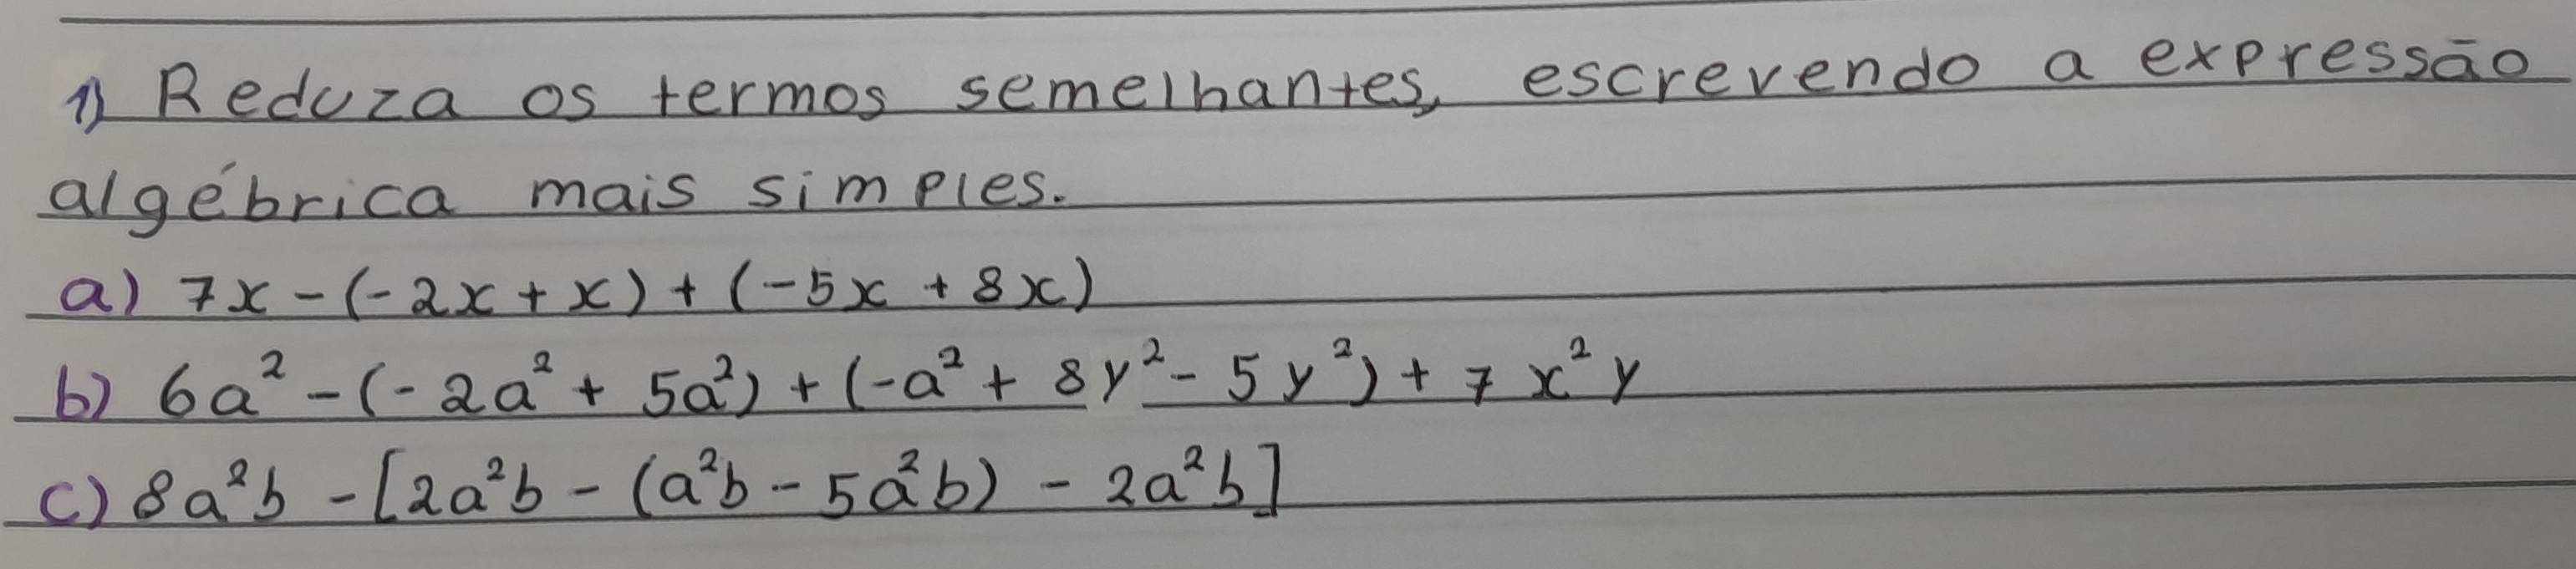 1) Reduza os termos semelhantes, escrevendo a expressão
algébrica mais simples.
a) 7x - (-2x + x) + (-5x + 8x)
b) 6a² - (-2a² + 5a²) + (-a² + 8y² - 5y²) + 7x²y
c) 8a²b - [2a²b - (a²b - 5a²b) - 2a²b]